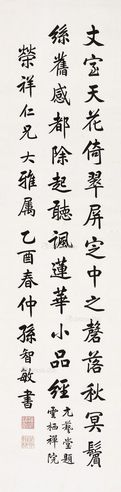 丈室天花倚翠屏定中之磬落秋冥鬢
絲舊感都除起聽諷蓮華小品經
元藝堂題
雲栖禪院
榮祥仁兄大雅属乙酉春仲孫智敏書